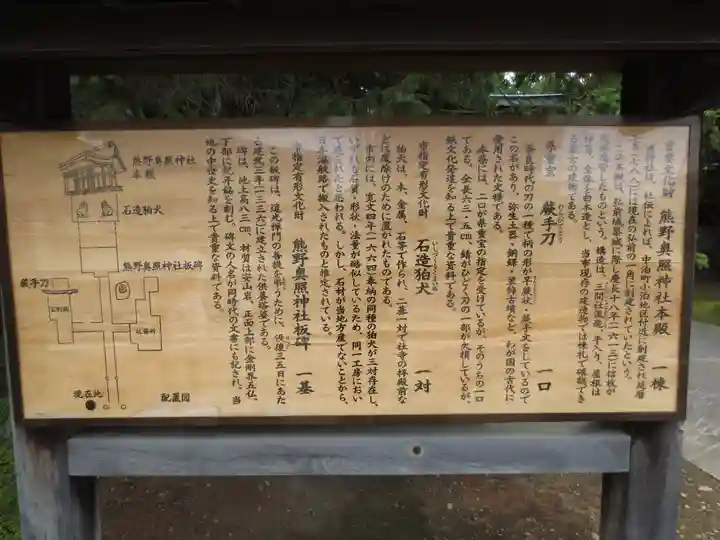 重要文化財　熊野奥照神社本殿　一棟
県重宝　蕨手刀　一口
奈良時代の刀の一種で柄の形が早蕨状・蕨手文をしているので
この名があり、弥生土器・銅鐸・装飾古墳など、わが国の古代に
愛用された文様である。
本県には、二口が県重宝の指定を受けているが、そのうちの一口
である。全長六三・五㎝、錆がひどく刀の一部が欠損しているが、
鉄文化発達を知る上で貴重な資料である。
市指定有形文化財　石造狛犬　一対
狛犬は、木、金属、石等で作られ、二基一対で社寺の拝殿前な
どに魔除けのために置かれたものである。
市内には、寛文四年（一六六四）奉納の同種の狛犬が三対存在し、
いずれも石質・形状・法量が酷似しているため、同一工房におい
て造られたと思われる。しかし、石材が当地方産でないことから、
日本海航路で搬入されたものと推定されている。
市指定有形文化財　熊野奥照神社板碑　一基
この板碑は、道光禅門の善根を弔うために、没後三五日にあた
る建武三年（一三三六）に建立された供養塔婆である。
碑は、地上高八三㎝、材質は安山岩、正面上部に金剛界五仏、
下部に記年銘を刻む。碑文の人名が同時代の文書にも記され、当
地の中世史を知る上で貴重な資料である。
熊野奥照神社
本殿
石造狛犬
熊野奥照神社板碑
蕨手刀
社務所
現在地
配置図